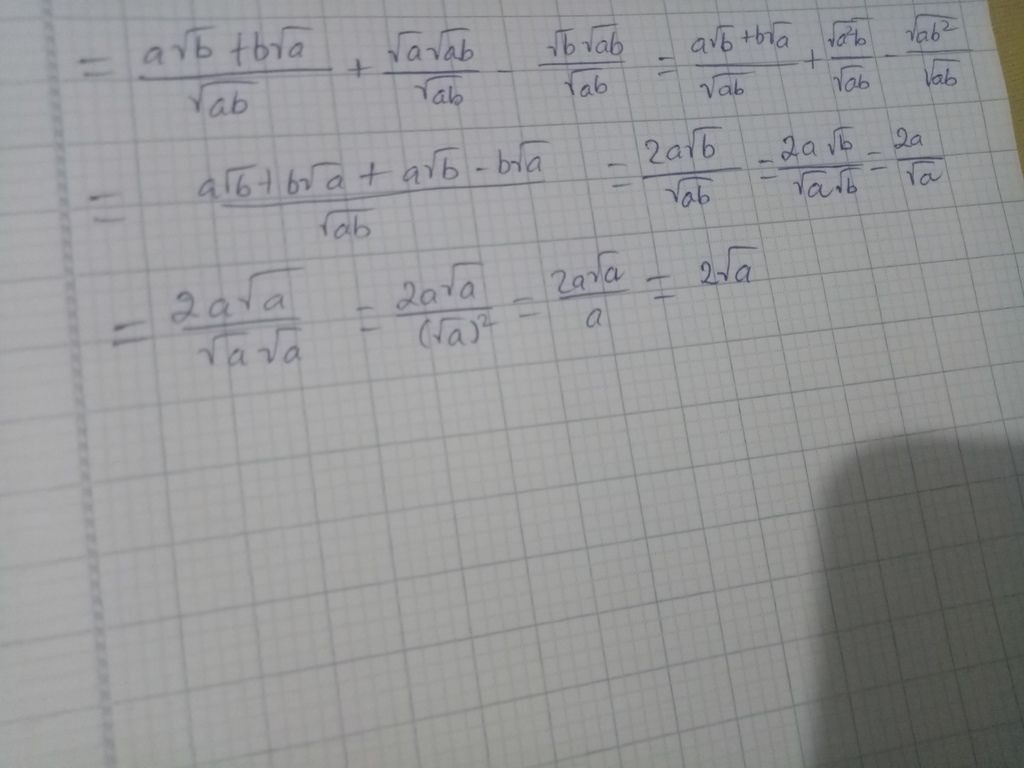 = (a√b + b√a)/√ab + (√a √ab)/√ab - (√b √ab)/√ab = (a√b + b√a)/√ab + √a²b/√ab - √ab²/√ab
= (a√b + b√a + a√b - b√a)/√ab = 2a√b/√ab = 2a√b/(√a√b) = 2a/√a
= 2a√a/(√a√a) = 2a√a/(√a)² = 2a√a/a = 2√a